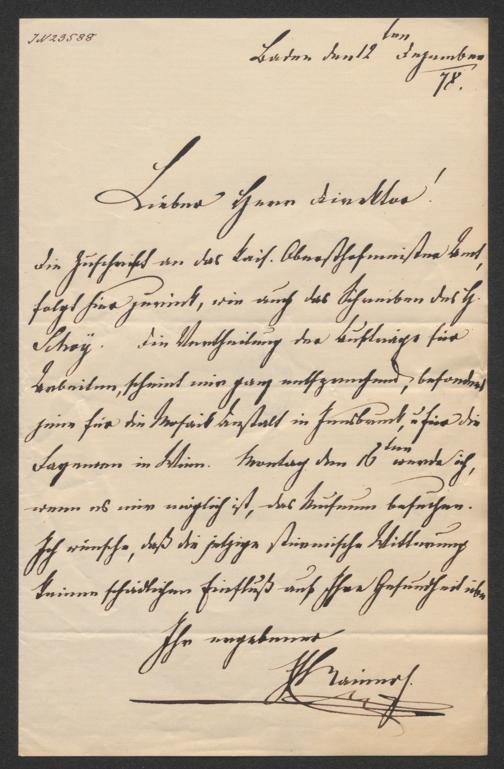 IN 23588
Baden den 12ten Dezember
78.
Lieber Herr Direktor!
Die Zuschrift an das kais. Obersthofmeister Amt,
folgt hier zurück, wie auch das Schreiben des H.
Die Vertheilung der Aufträge für
Arbeiten, scheint mir ganz entsprechend, besonders
jene für die Mosaik Anstalt in Innsbruck, u für die
in Wien. Montag den 16ten werde ich,
wenn es mir möglich ist, das Museum besuchen.
Ich wünsche, daß die jetzige stürmische Witterung
keinen schädlichen Einfluß auf Ihre Gesundheit übe
Ihr ergebener